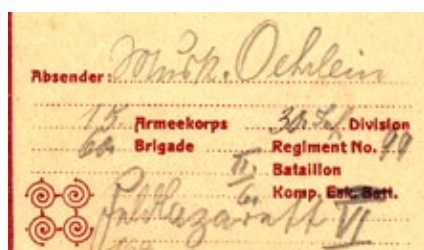 Absender: Musk. Oehrlein
15. Armeekorps 30. Inf. Division
60. Brigade Regiment No. 99
II. Bataillon
6. Komp. Esk. Batt.
Feldlazarett VI